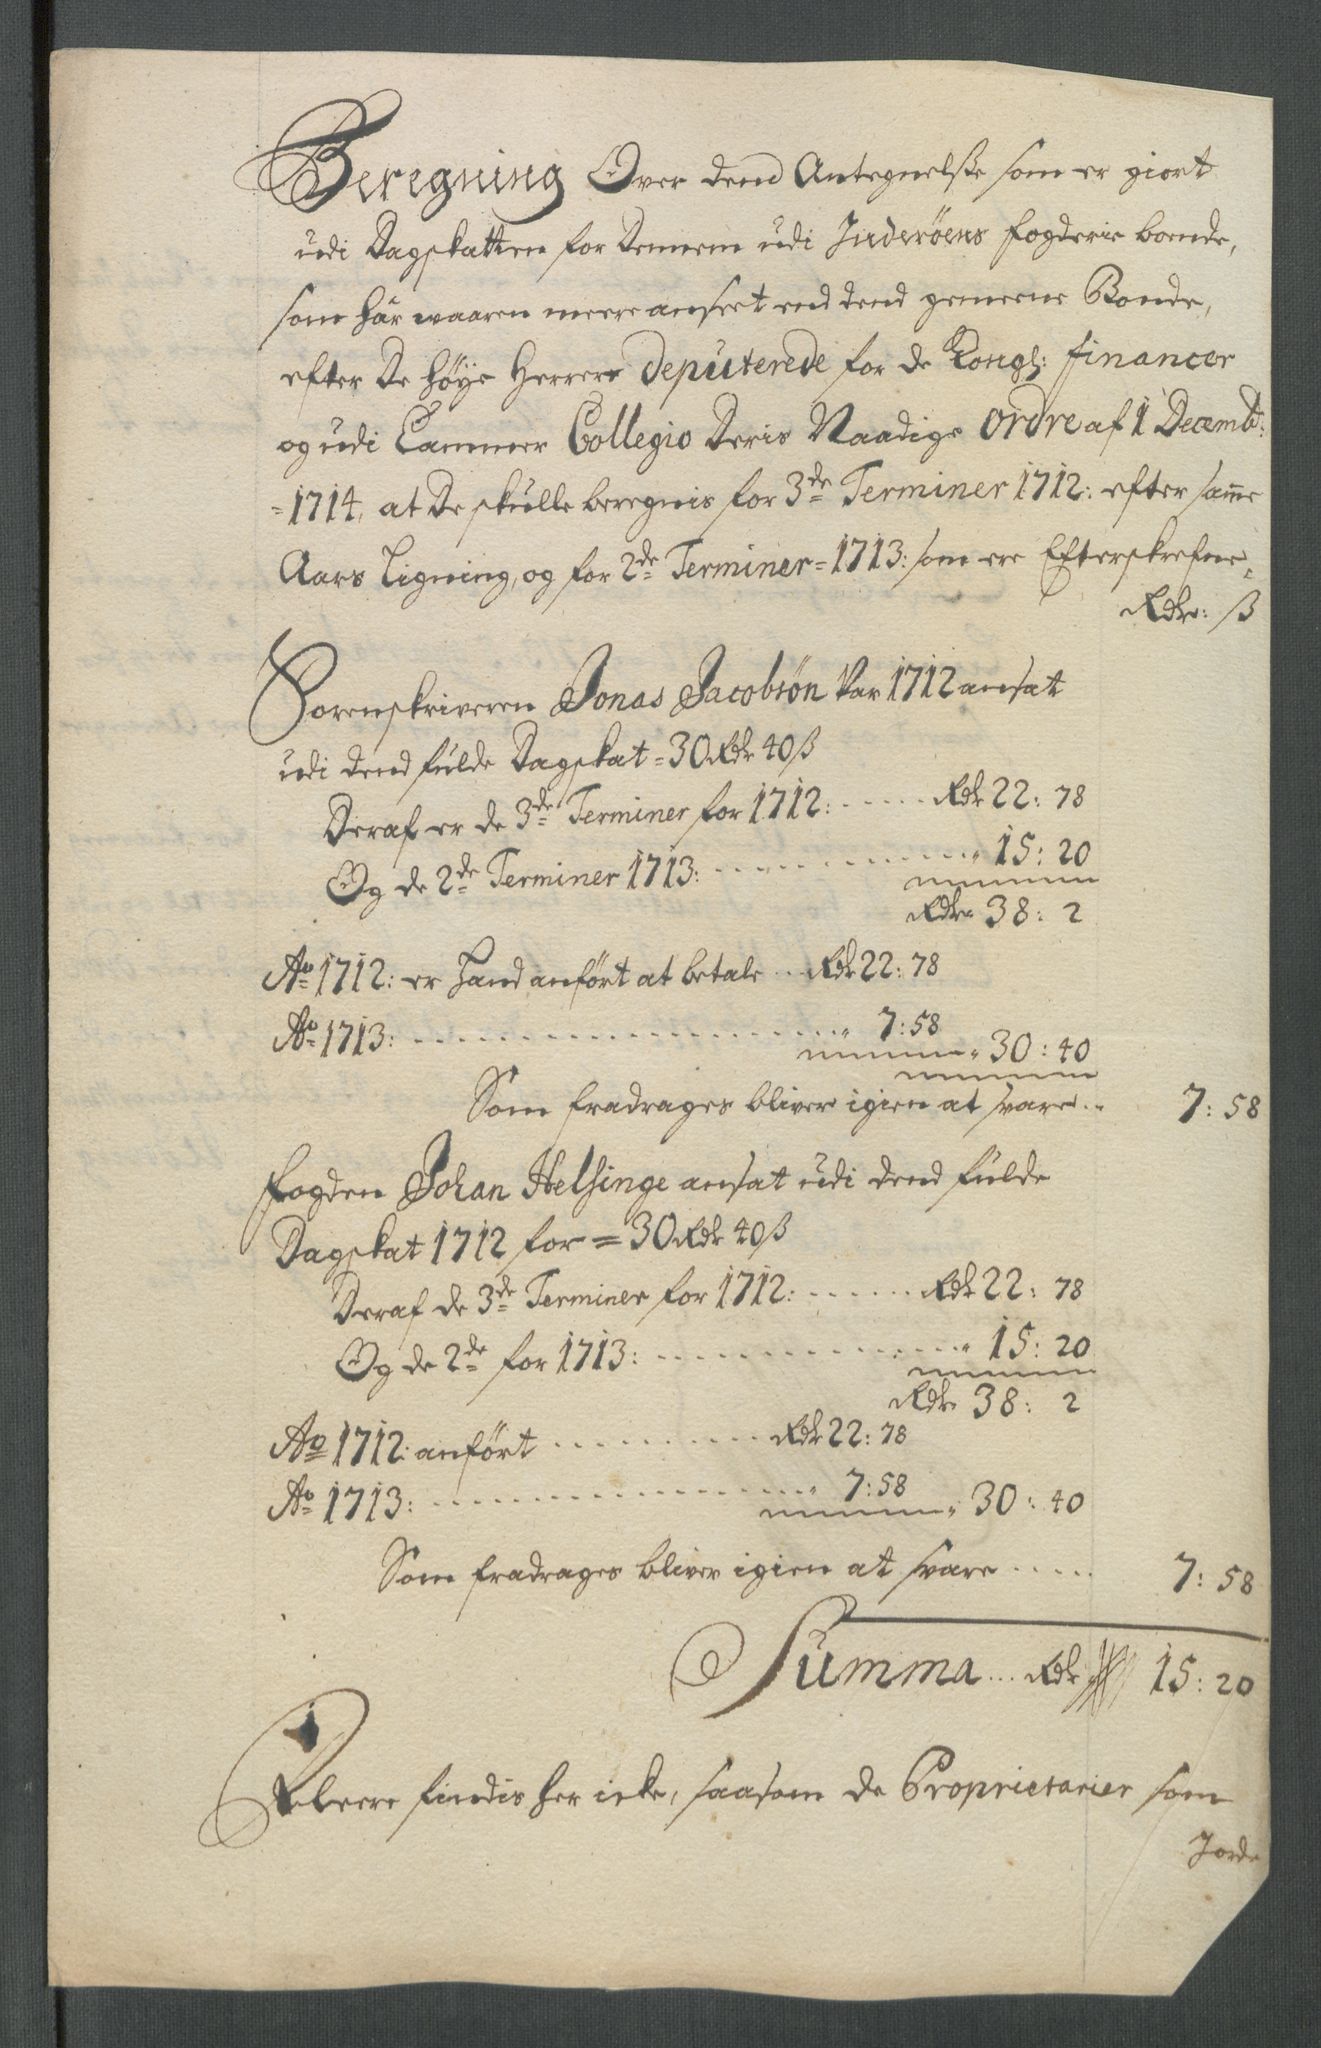 Beregning Over dend Antegnelse som er giort
udi Dagskatten for Dennem udi Inderöens fogderie boende,
som här waaren meere anseet end dend gemeene Bonde,
efter De höye Herrer Deputerede for de Kongl: financer
og udi Cammer Collegio Deris Naadige Ordre af 1 Decemb:
1714, at De skulle beregnis for 3de Terminer 1712: efter samme
Aars Ligning, og for 2de Terminer = 1713: som ere Efterskrefne
Rdr: ß
Sorenskriveren Jonas Jacobsön Var 1712 ansat
udi dend fulde Dagskat = 30 Rdr 40 ß
Deraf er de 3de Terminer for 1712: ...... Rdr 22: 78
Og de 2de Terminer 1713: ............ " 15: 20
Rdr 38: 2
Ao 1712: er hand anfört at betale ... Rdr 22: 78
Ao 1713: .................... " 7: 58
" 30: 40
Som fradrages bliver igien at svare .. 7: 58
fogden Johan Helsinge ansat udi dend fulde
Dagskat 1712 for = 30 Rdr 40 ß
Deraf de 3de Terminer for 1712: ...... Rdr 22: 78
Og de 2de for 1713: ............ " 15: 20
Rdr 38: 2
Ao 1712: anfört .......... Rdr 22: 78
Ao 1713: .................. " 7: 58
" 30: 40
Som fradrages bliver igien at svare ..... 7: 58
Summa ... Rdr 15: 20
fleere findis her icke, saasom de Proprietarier som
Jorde